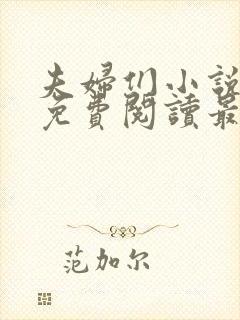 夫婦们小說
免費閱讀最
范加尔